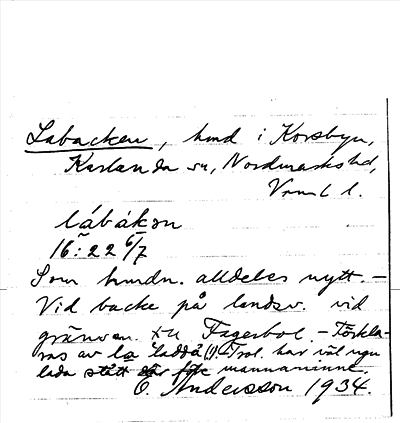 Labacken, hmd i Korsbyn,
Karlanda sn, Nordmarks hd,
Vrml l.
låbåkən
16:22 6/7
Som hmdn. alldeles nytt. –
Vid backe på landsv. vid
gränsen till Fagerbol. – Förkla-
ras av la 'ladda' (!). Trol. har väl ngn
lada stått där före mannaminne.
E. Andersson 1934.